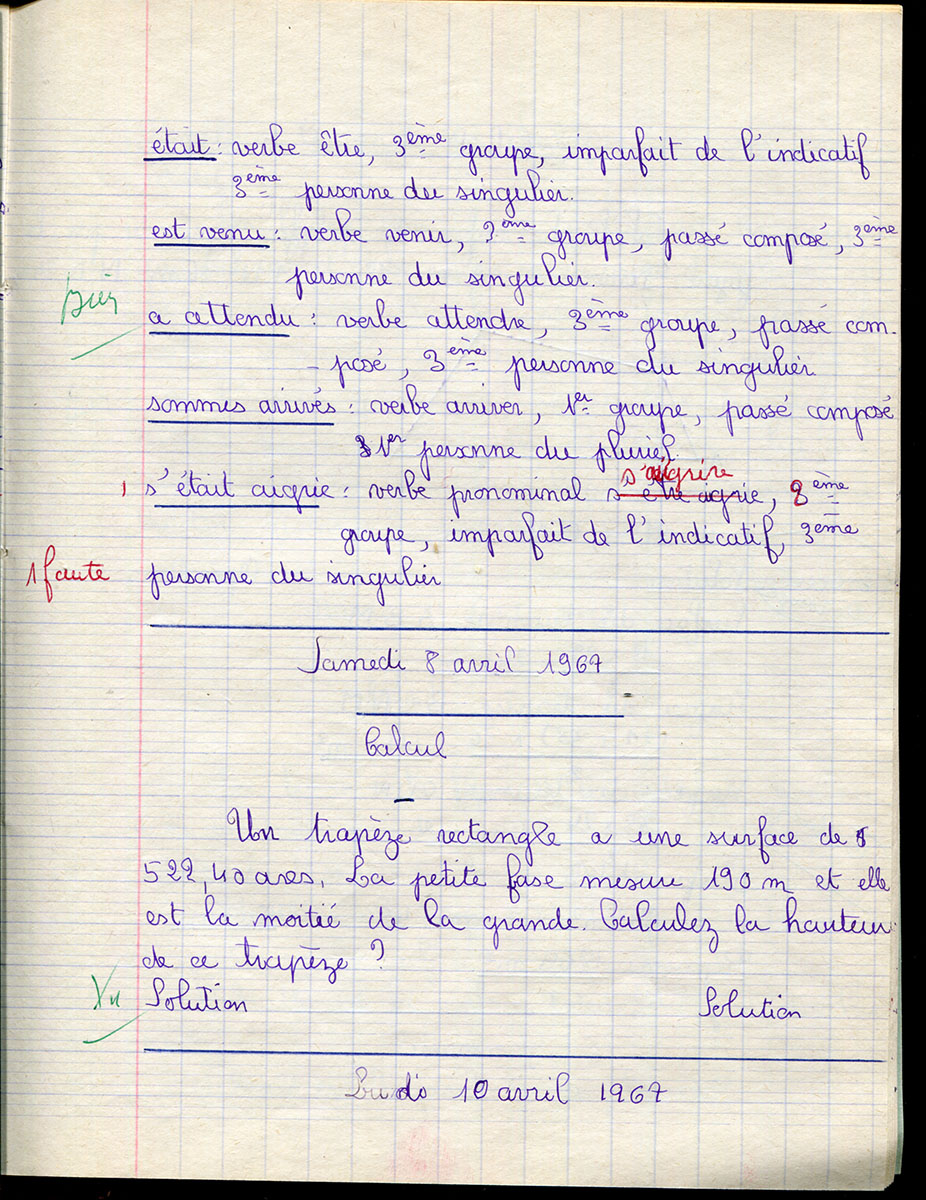 était : verbe être, 3ème groupe, imparfait de l'indicatif
3ème personne du singulier.
est venu : verbe venir, 3ème groupe, passé composé, 3ème
personne du singulier.
bien
a attendu : verbe attendre, 3ème groupe, passé com-
- posé, 3ème personne du singulier
sommes arrivés : verbe arriver, 1er groupe, passé composé
1er personne du pluriel.
s'aigrire
1 s'était aigrie : verbe pronominal s'être aigrie, 2ème
groupe, imparfait de l'indicatif, 3ème
1 faute personne du singulier
Samedi 8 avril 1967
Calcul
Un trapèze rectangle a une surface de
522,40 ares. La petite base mesure 190 m et elle
est la moitié de la grande. Calculez la hauteur
de ce trapèze ?
Vu Solution Solution
Lundi 10 avril 1967